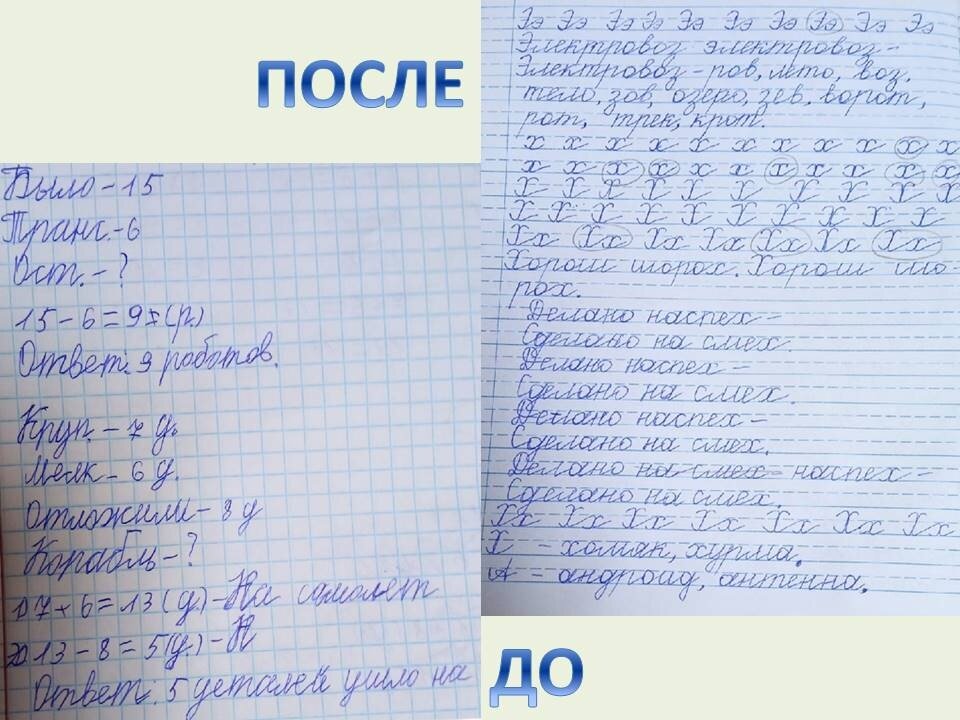 ПОСЛЕ
Было-15
Транс.-6
Ост.-?
15-6=9 (р.)
Ответ: 9 роботов.
Круп.-7 д.
Мелк-6 д.
Отложили-8 д
Корабль-?
1) 7+6=13 (д.)-На самолёт
2) 13-8=5 (д.)-Н
Ответ: 5 деталей ушло на
Ээ Ээ Ээ Ээ Ээ Ээ Ээ Ээ Ээ Ээ
Электровоз электровоз-
Электровоз-ров, лето, воз,
тело, зов, озеро, зев, ворот,
рот, трек, крот.
х х х х х х х х х х х
х х х х х х х х х х х
Х Х Х Х Х Х Х Х Х Х
Х Х Х Х Х Х Х Х Х Х
Хх Хх Хх Хх Хх Хх Хх
Хорош шорох. Хорош шо-
рох.
Делано наспех-
Сделано на смех.
Делано наспех-
Сделано на смех.
Делано наспех-
Сделано на смех.
Делано на смех- наспех-
Сделано на смех.
Хх Хх Хх Хх Хх Хх Хх
Х - хомяк, хурма.
А - андроид, антенна.
ДО